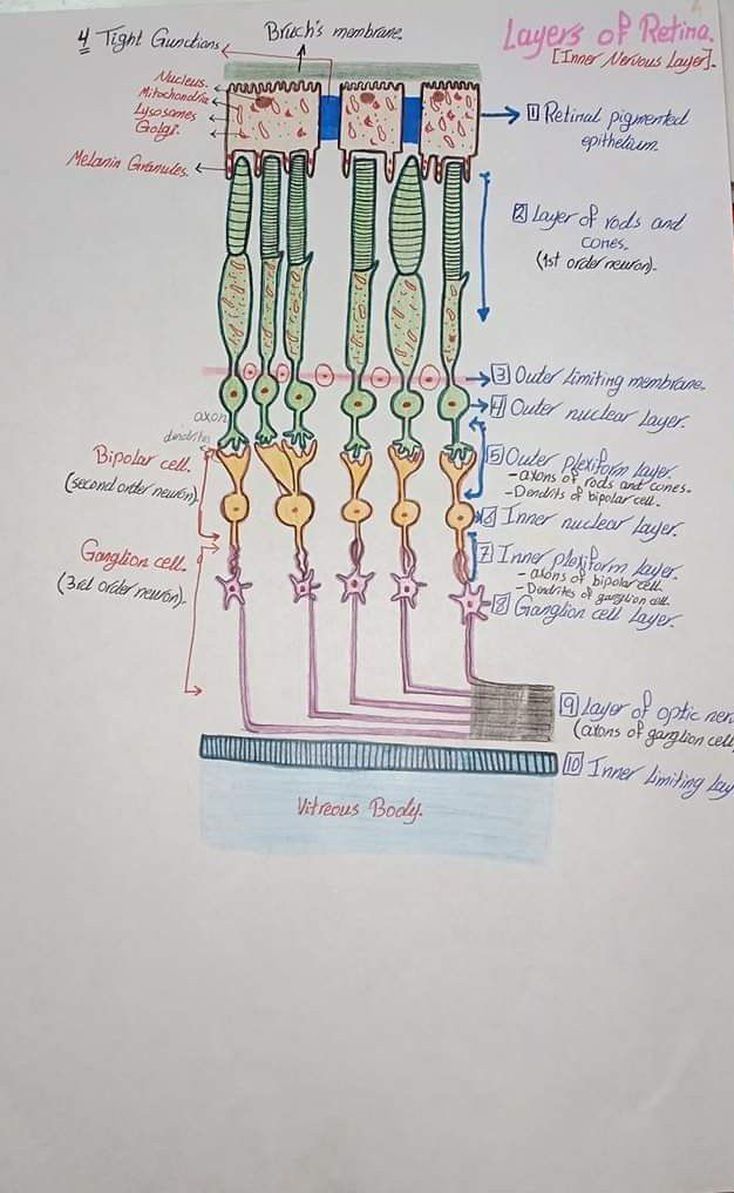 Layers of Retina.
[Inner Nervous Layer].
4 Tight Gunctions
Bruch's membrane.
Nucleus.
Mitochondria
Lysosomes
Golgi.
Melanin Granules.
1 Retinal pigmented
epithelium.
2 Layer of rods and
cones.
(1st order neuron).
3 Outer limiting membrane.
4 Outer nuclear layer.
axon
dendrites
5 Outer plexiform layer.
-axons of rods and cones.
-Dendrits of bipolar cell.
Bipolar cell.
(second order neuron).
6 Inner nuclear layer.
7 Inner plexiform layer.
- axons of bipolar cell.
-Dendrites of ganglion cell.
Ganglion cell.
(3rd order neuron).
8 Ganglion cell Layer.
9 Layer of optic ner
(axons of ganglion cell
10 Inner limiting lay
Vitreous Body.